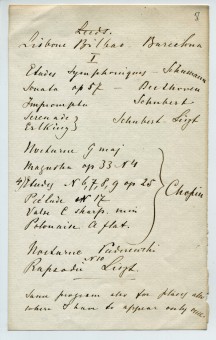 8
Leeds.
Lisbone Bilbao Barcelona
I
Etudes Symphoniques - Schumann
Sonata op 57 - Beethoven
Impromptu Schubert
Serenade }
Erlking } Schubert Liszt
Nocturne G maj
Mazurka op 33 N 4
4/ Etudes N 6, 7, 8, 9 op 25
Prélude N 17
Chopin
Valse C sharp. min
Polonaise A flat.
Nocturne Paderewski
Rapsodie N 10 Liszt.
Same program also for places
where I have to appear only once.